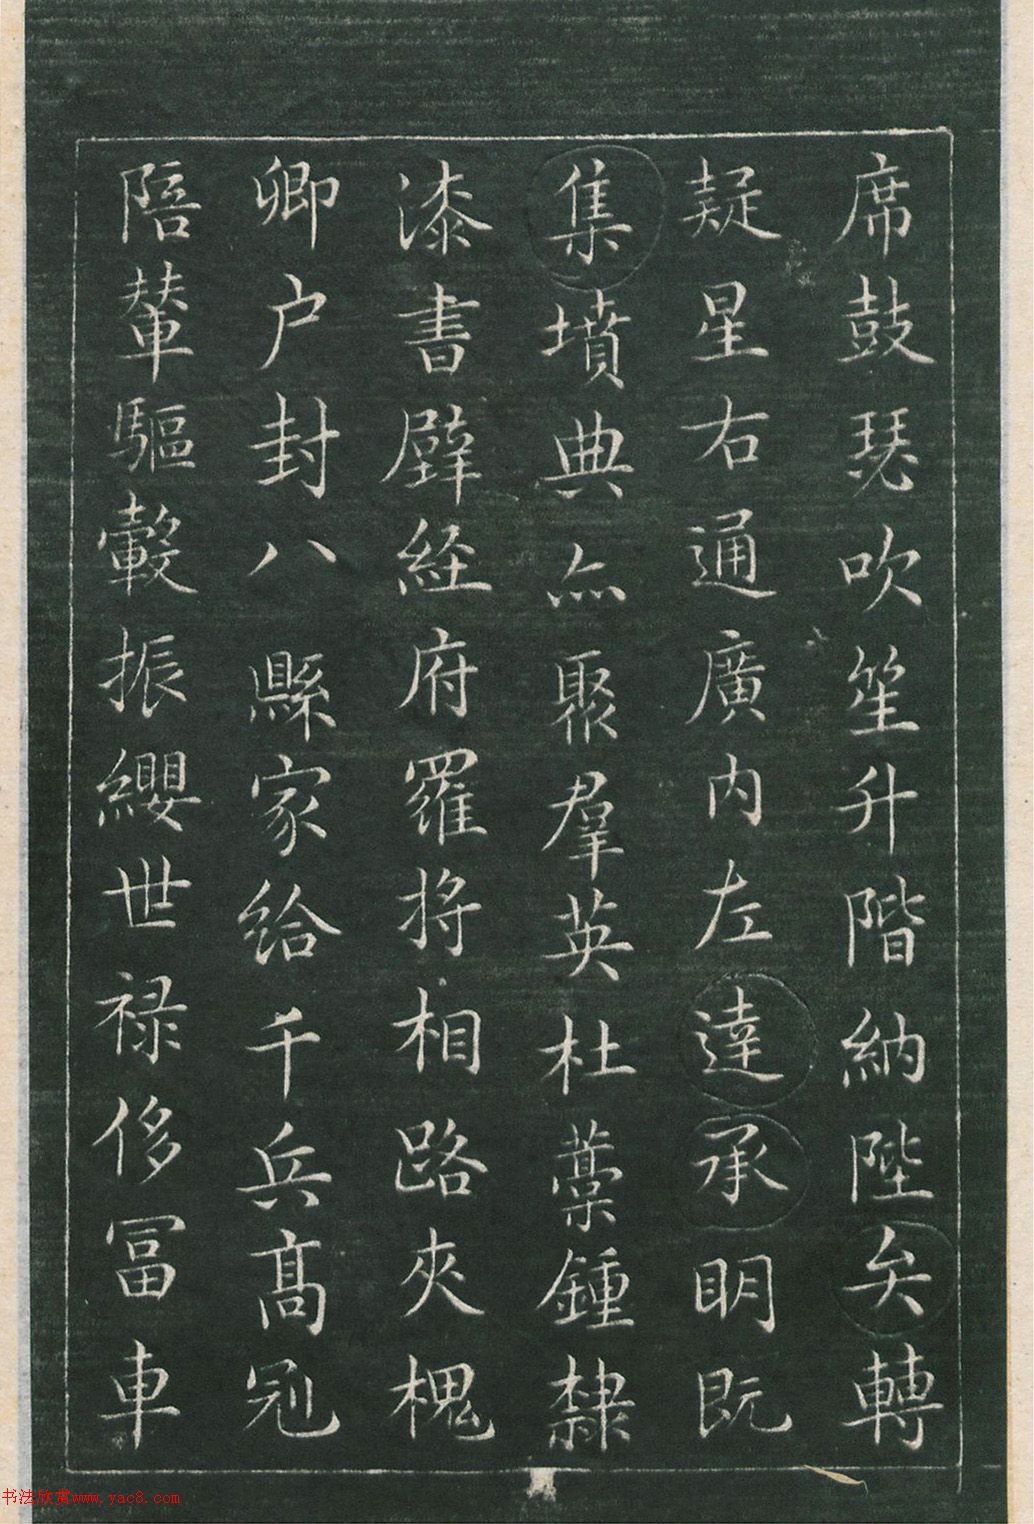 席鼓瑟吹笙升階納陛矣轉
疑星右通廣内左達承明既
集墳典亦聚羣英杜藁鍾隸
漆書壁経府羅将相路夾槐
卿户封八縣家給千兵髙冠
陪輦驅轂振纓世禄侈冨車
书法欣赏www.yac8.com